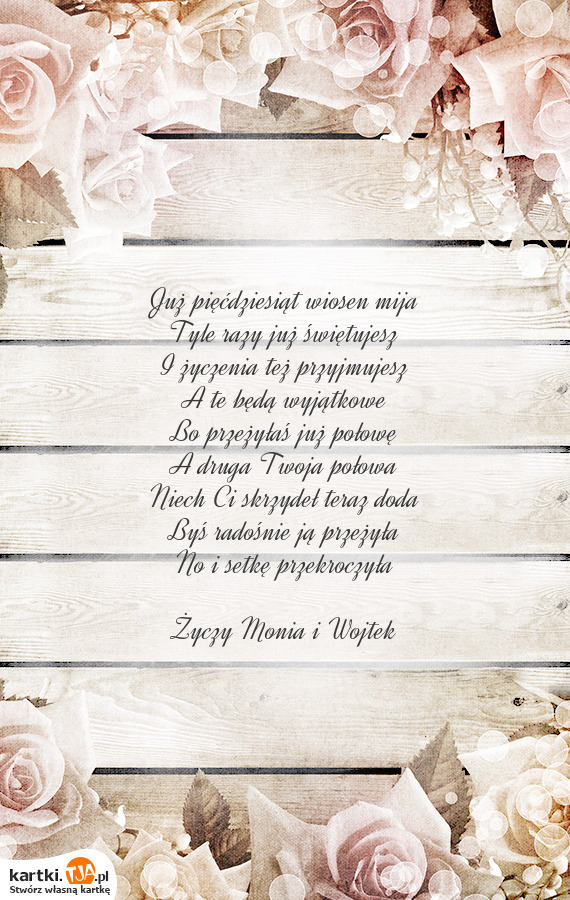 Już pięćdziesiąt wiosen mija
Tyle razy już świętujesz
I życzenia też przyjmujesz
A te będą wyjątkowe
Bo przeżyłaś już połowę
A druga Twoja połowa
Niech Ci skrzydeł teraz doda
Byś radośnie ją przeżyła
No i setkę przekroczyła
Życzy Monia i Wojtek
kartki.TJA.pl
Stwórz własną kartkę